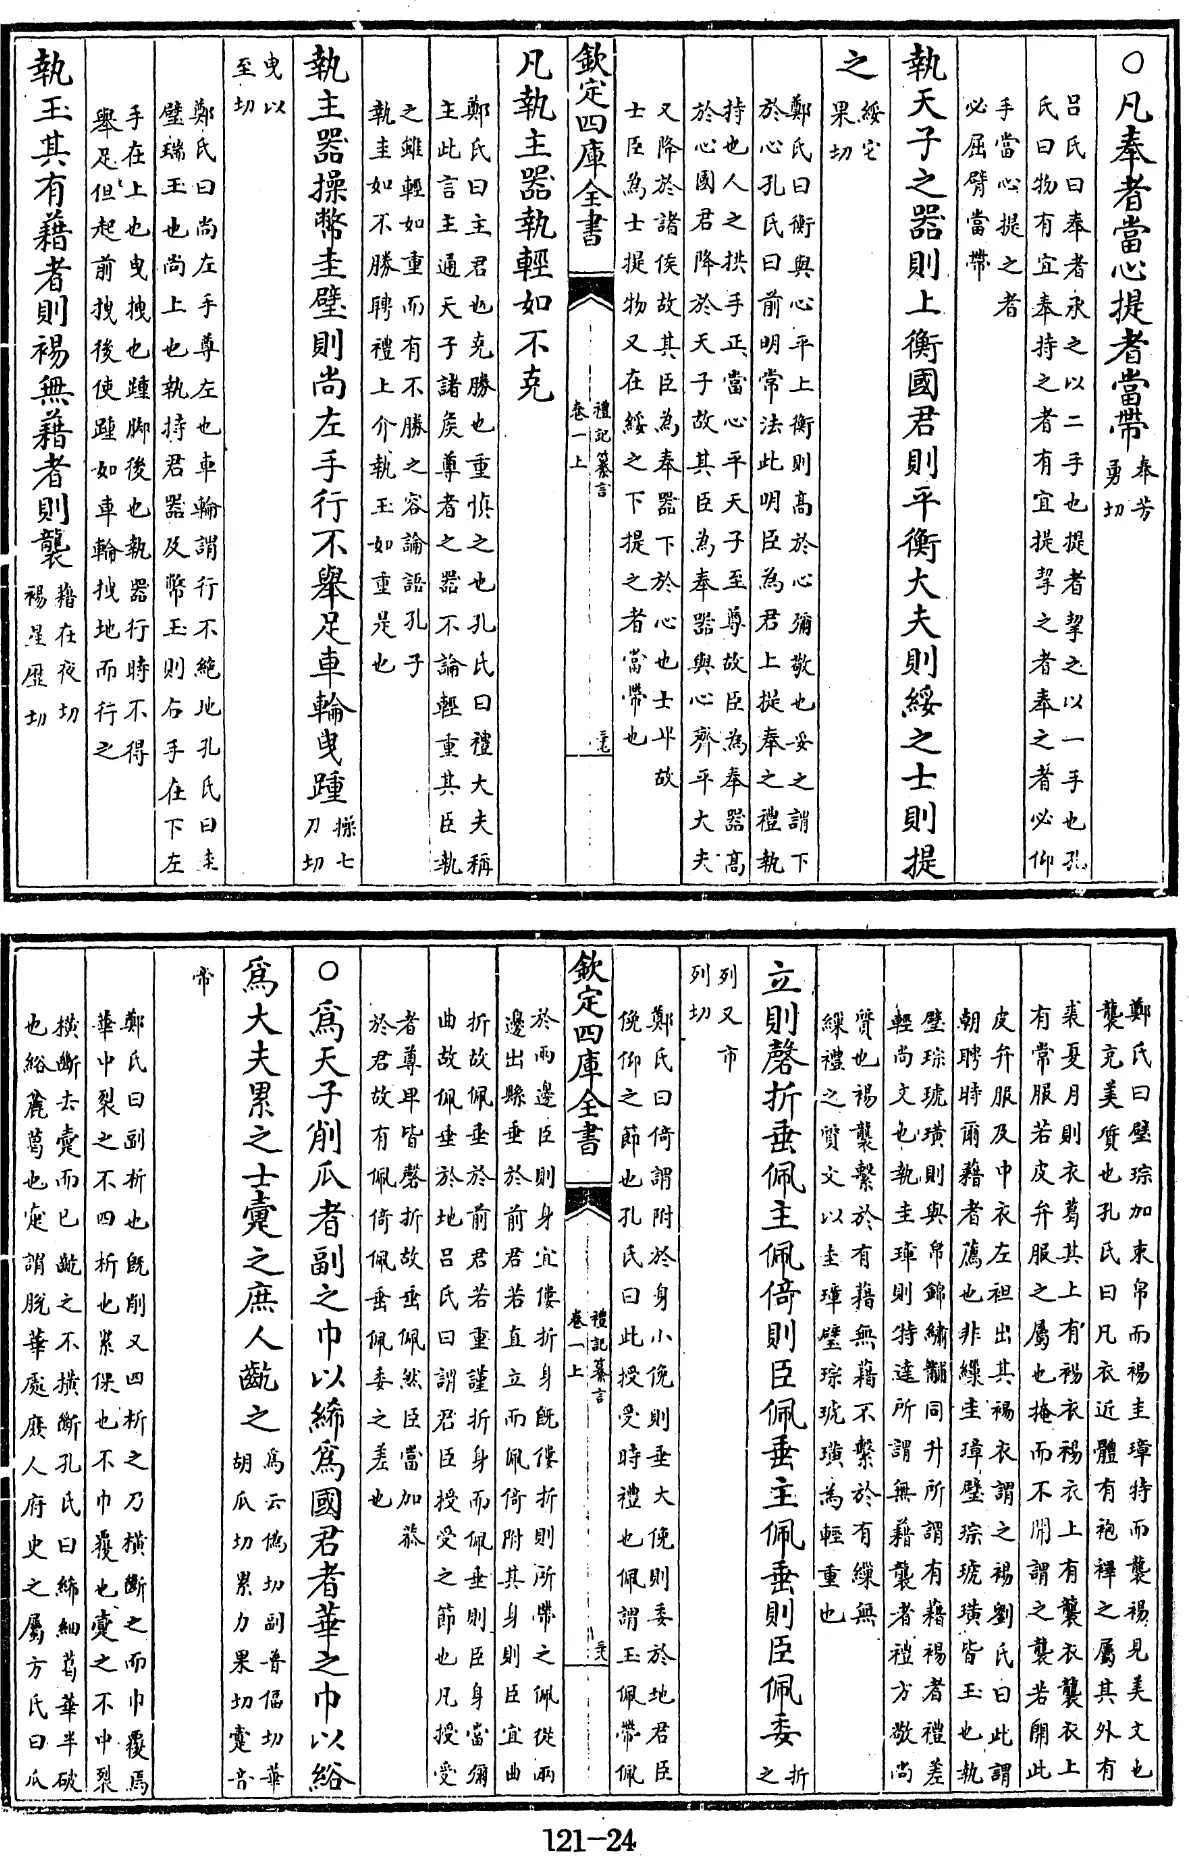 ○凡奉者當心提者當帶奉芳
勇切
呂氏曰奉者承之以二手也提者挈之以一手也孔
氏曰物有宜奉持之者有宜提挈之者奉之者必仰
手當心提之者
必屈臂當帶
執天子之器則上衡國君則平衡大夫則綏之士則提
之綏它
果切
鄭氏曰衡與心平上衡則髙於心彌敬也妥之謂下
於心孔氏曰前明常法此明臣為君上提奉之禮執
持也人之拱手正當心平天子至尊故臣為奉器髙
於心國君降於天子故其臣為奉器與心齊平大夫
又降於諸侯故其臣為奉器下於心也士卑故
士臣為士提物又在綏之下提之者當帶也
欽定四庫全書
禮記纂言
卷一上
凡執主器執輕如不克
鄭氏曰主君也克勝也重慎之也孔氏曰禮大夫稱
主此言主通天子諸侯尊者之器不論輕重其臣執
之雖輕如重而有不勝之容論語孔子
執圭如不勝聘禮上介執玉如重是也
執主器操幣圭璧則尚左手行不舉足車輪曳踵操七
刀切
曳以
至切
鄭氏曰尚左手尊左也車輪謂行不絶地孔氏曰圭
璧瑞玉也尚上也執持君器及幣玉則右手在下左
手在上也曳拽也踵脚後也執器行時不得
舉足但起前拽後使踵如車輪拽地而行之
執玉其有藉者則裼無藉者則襲藉在夜切
裼星歷切
鄭氏曰璧琮加束帛而裼圭璋特而襲裼見美文也
襲充美質也孔氏曰凡衣近體有袍襗之屬其外有
裘夏月則衣葛其上有裼衣裼衣上有襲衣襲衣上
有常服若皮弁服之屬也掩而不開謂之襲若開此
皮弁服及中衣左袒出其裼衣謂之裼劉氏曰此謂
朝聘時爾藉者薦也非繅圭璋璧琮琥璜皆玉也執
璧琮琥璜則與帛錦繡黼同升所謂有藉裼者禮差
輕尚文也執圭璋則特達所謂無藉襲者禮方敬尚
質也裼襲繫於有藉無藉不繫於有繅無
繅禮之質文以圭璋璧琮琥璜為輕重也
立則磬折垂佩主佩倚則臣佩垂主佩垂則臣佩委折
之
列又市
列切
鄭氏曰倚謂附於身小俛則垂大俛則委於地君臣
俛仰之節也孔氏曰此授受時禮也佩謂玉佩帶佩
欽定四庫全書
禮記纂言
卷一上
於兩邊臣則身宜僂折身既僂折則所帶之佩從兩
邊出縣垂於前君若直立而佩倚附其身則臣宜曲
折故佩垂於前君若重謹折身而佩垂則臣身當彌
曲故佩垂於地呂氏曰謂君臣授受之節也凡授受
者尊卑皆磬折故垂佩然臣當加恭
於君故有佩倚佩垂佩委之差也
○為天子削瓜者副之巾以絺為國君者華之巾以綌
為大夫累之士疐之庶人齕之為云偽切副普逼切華
胡瓜切累力果切疐音
帝
鄭氏曰副析也既削又四析之乃橫斷之而巾覆焉
華中裂之不四析也累倮也不巾覆也疐之不中裂
橫斷去疐而已齕之不橫斷孔氏曰絺細葛華半破
也綌麄葛也疐謂脫華處庶人府史之屬方氏曰瓜
121-24